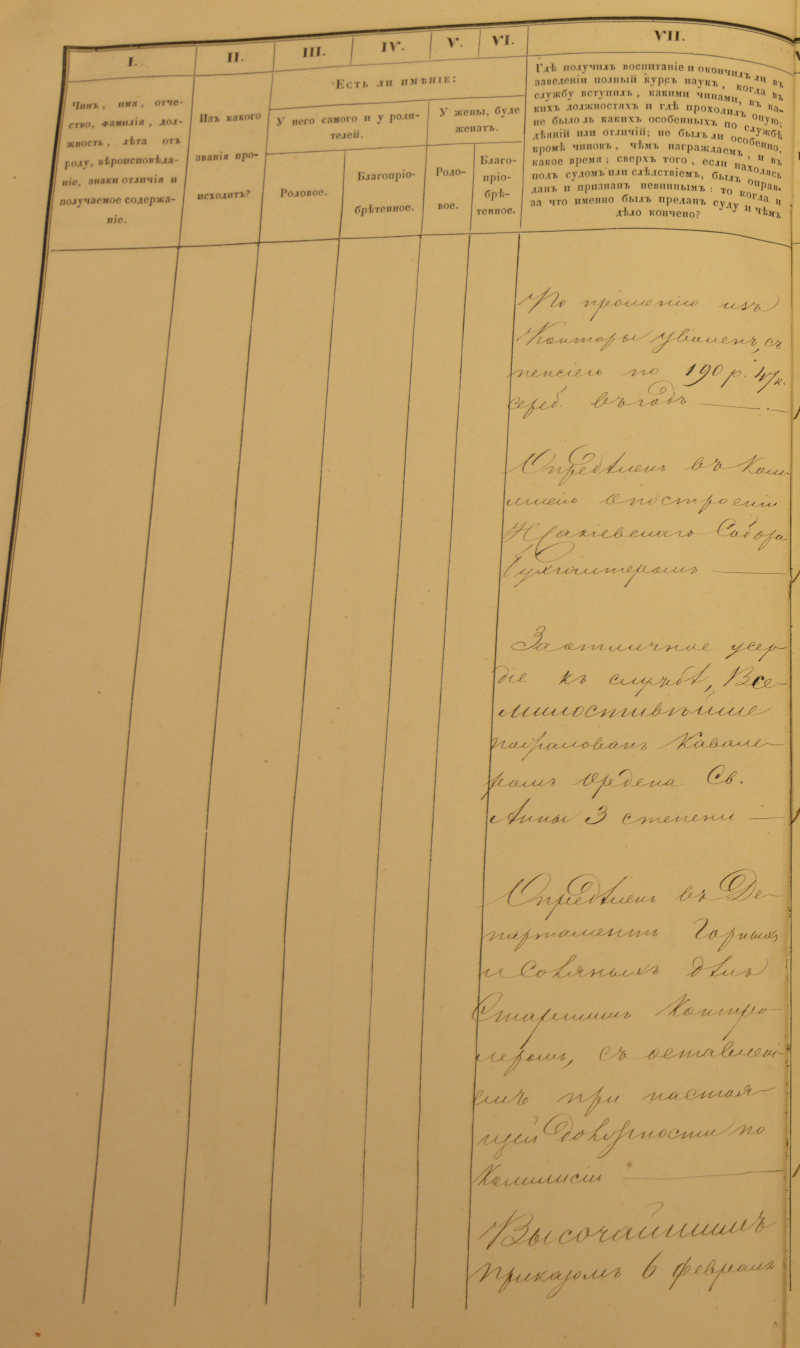 I.
II.
III.
IV.
V.
VI.
VII.
Чинъ, имя, отче-
ство, фамилія, дол-
жность, лѣта отъ
роду, вѣроисповѣда-
ніе, знаки отличія и
получаемое содержа-
ніе.
Изъ какого
званія про-
исходитъ?
Есть ли имѣніе:
У него самого и у роди-
телей.
У жены, буде
женатъ.
Родовое.
Благопріо-
брѣтенное.
Родо-
вое.
Благо-
пріо-
брѣ-
тенное.
Гдѣ получилъ воспитаніе и окончилъ ли въ
заведеніи полный курсъ наукъ, когда въ
службу вступилъ, какими чинами, въ ка-
кихъ должностяхъ и гдѣ проходилъ оную,
не было ль какихъ особенныхъ по службѣ
дѣяній или отличій; не былъ ли особенно,
кромѣ чиновъ, чѣмъ награждаемъ, и въ
какое время; сверхъ того, если находясь
подъ судомъ или слѣдствіемъ, былъ оправ-
данъ и признанъ невиннымъ: то когда и
за что именно былъ преданъ суду и чѣмъ
дѣло кончено?
По прошенію изъ
Конторы уволенъ, съ
пенсіею по 190 р. 47 к.
сереб. въ годъ
Опредѣленъ въ Ком-
мисію о построеніи
Исакіевскаго Собора
Бухгалтеромъ
За отличное усер-
діе къ службѣ, Все-
милостивѣйше
пожалованъ Кавале-
ромъ Ордена Св.
Анны 3 степени
Опредѣленъ въ Де-
партаментъ Горныхъ
и Соляныхъ дѣлъ
Старшимъ Контро-
леромъ, съ оставлені-
емъ при настоя-
щей должности по
Коммисіи
Высочайшимъ
приказомъ 6 февраля